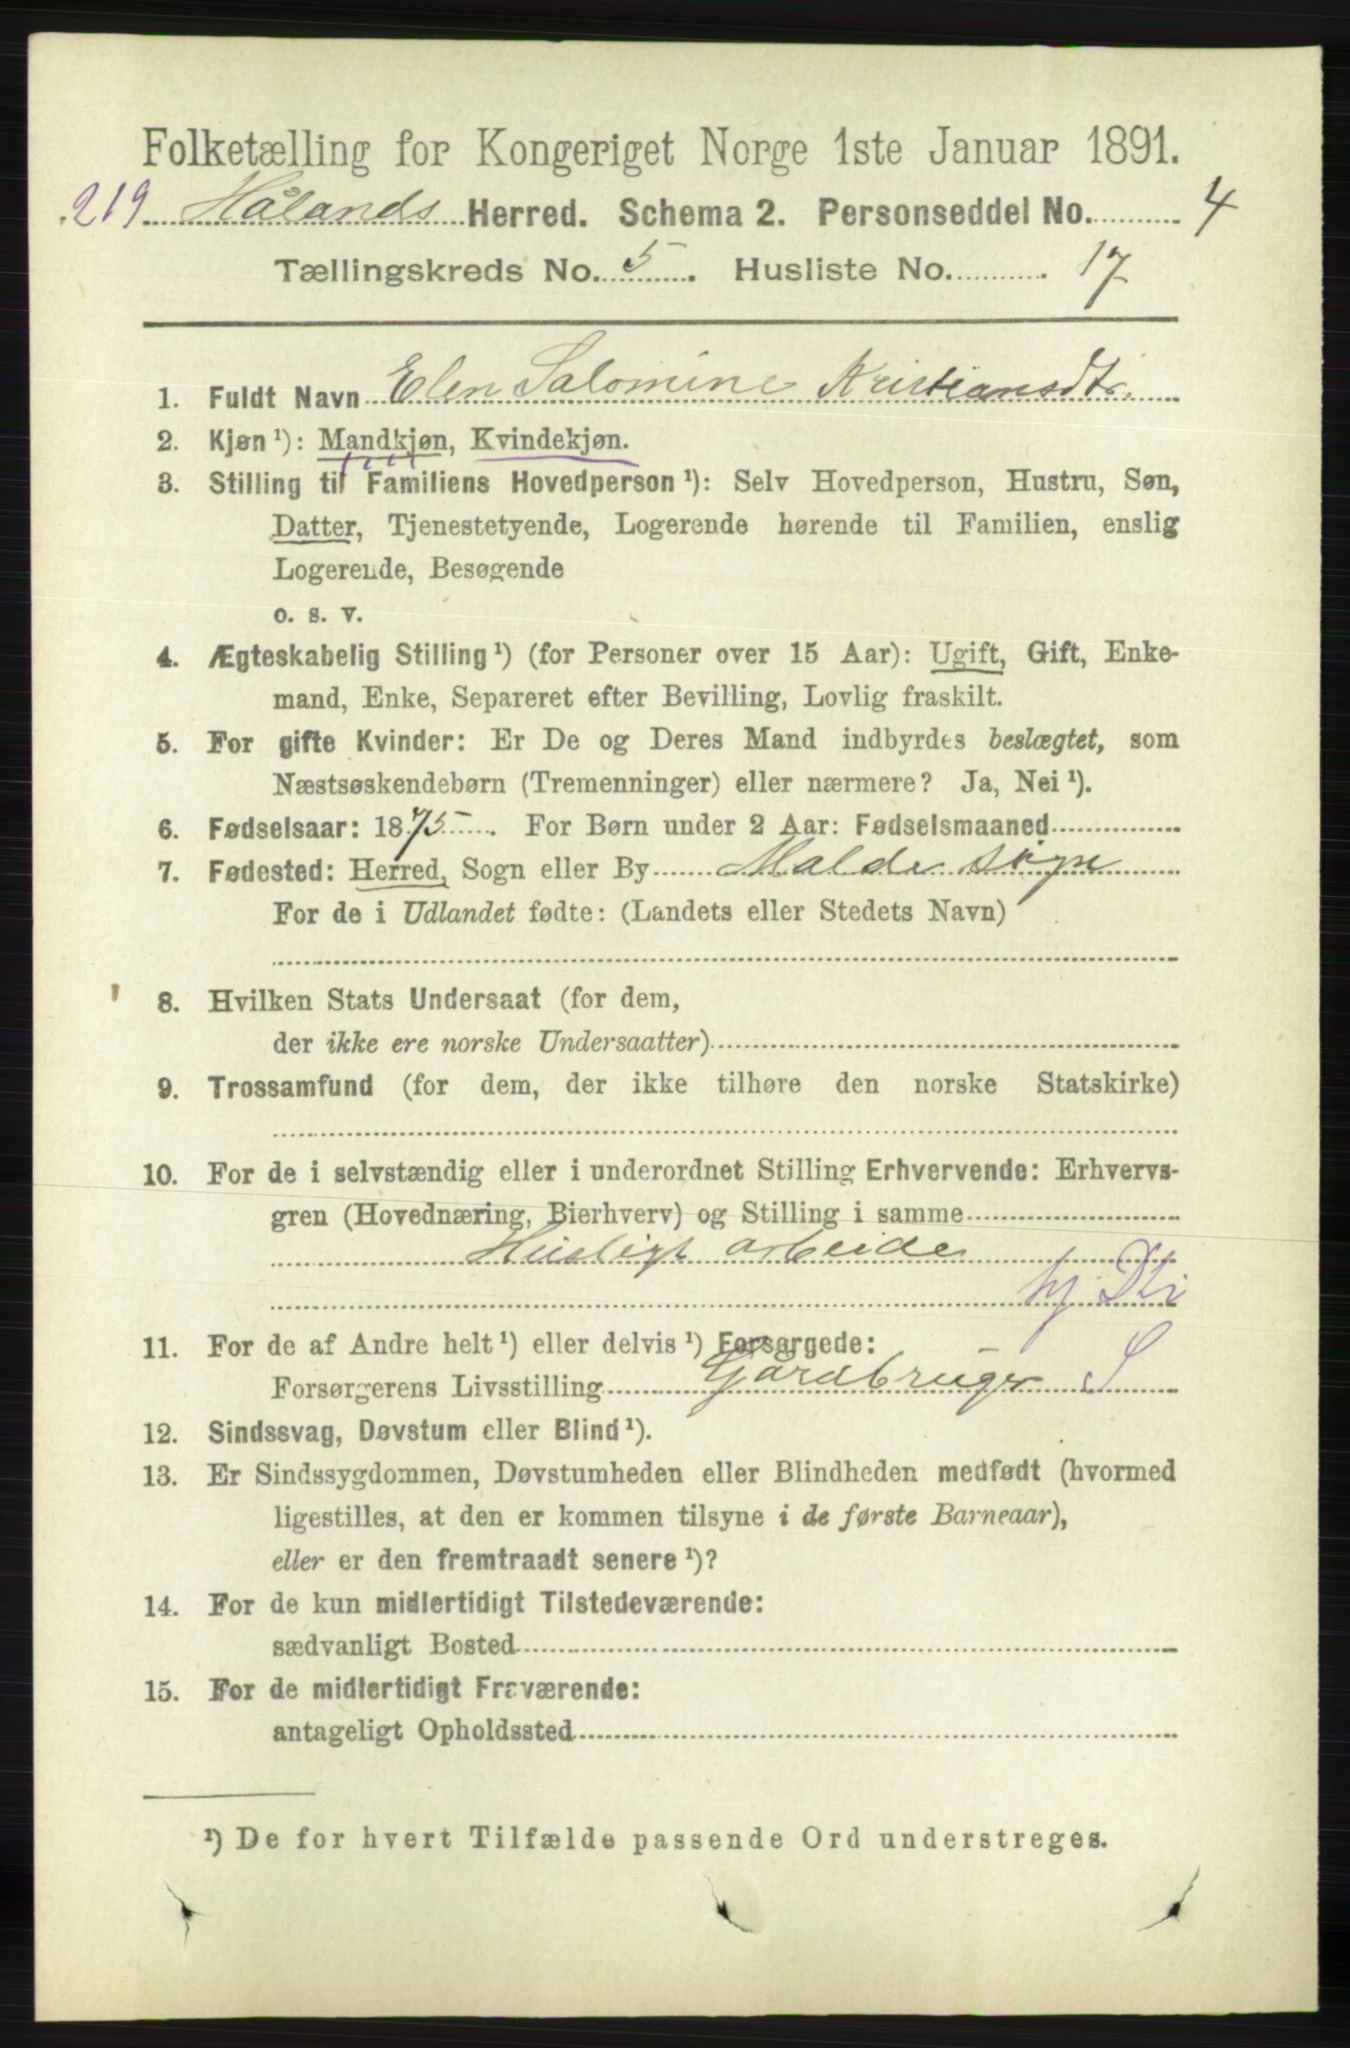 Folketælling for Kongeriget Norge 1ste Januar 1891.
219 Hålands Herred. Schema 2. Personseddel No. 4
Tællingskreds No. 5. Husliste No. 17
1. Fuldt Navn Elen Salomine Kristiansdtr.
2. Kjøn¹): Mandkjøn, Kvindekjøn.
3. Stilling til Familiens Hovedperson¹): Selv Hovedperson, Hustru, Søn,
Datter, Tjenestetyende, Logerende hørende til Familien, enslig
Logerende, Besøgende
o. s. v.
4. Ægteskabelig Stilling¹) (for Personer over 15 Aar): Ugift, Gift, Enke-
mand, Enke, Separeret efter Bevilling, Lovlig fraskilt.
5. For gifte Kvinder: Er De og Deres Mand indbyrdes beslægtet, som
Næstsøskendebørn (Tremenninger) eller nærmere? Ja, Nei¹).
6. Fødselsaar: 1875. For Børn under 2 Aar: Fødselsmaaned
7. Fødested: Herred, Sogn eller By Malde sogn
For de i Udlandet fødte: (Landets eller Stedets Navn)
8. Hvilken Stats Undersaat (for dem,
der ikke ere norske Undersaatter)
9. Trossamfund (for dem, der ikke tilhøre den norske Statskirke)
10. For de i selvstændig eller i underordnet Stilling Erhvervende: Erhvervs-
gren (Hovednæring, Bierhverv) og Stilling i samme
Husligt arbeide
11. For de af Andre helt¹) eller delvis¹) Forsørgede:
Forsørgerens Livsstilling Gårdbruger S
12. Sindssvag, Døvstum eller Blind¹).
13. Er Sindssygdommen, Døvstumheden eller Blindheden medfødt (hvormed
ligestilles, at den er kommen tilsyne i de første Barneaar),
eller er den fremtraadt senere¹)?
14. For de kun midlertidigt Tilstedeværende:
sædvanligt Bosted
15. For de midlertidigt Fraværende:
antageligt Opholdssted
¹) De for hvert Tilfælde passende Ord understreges.